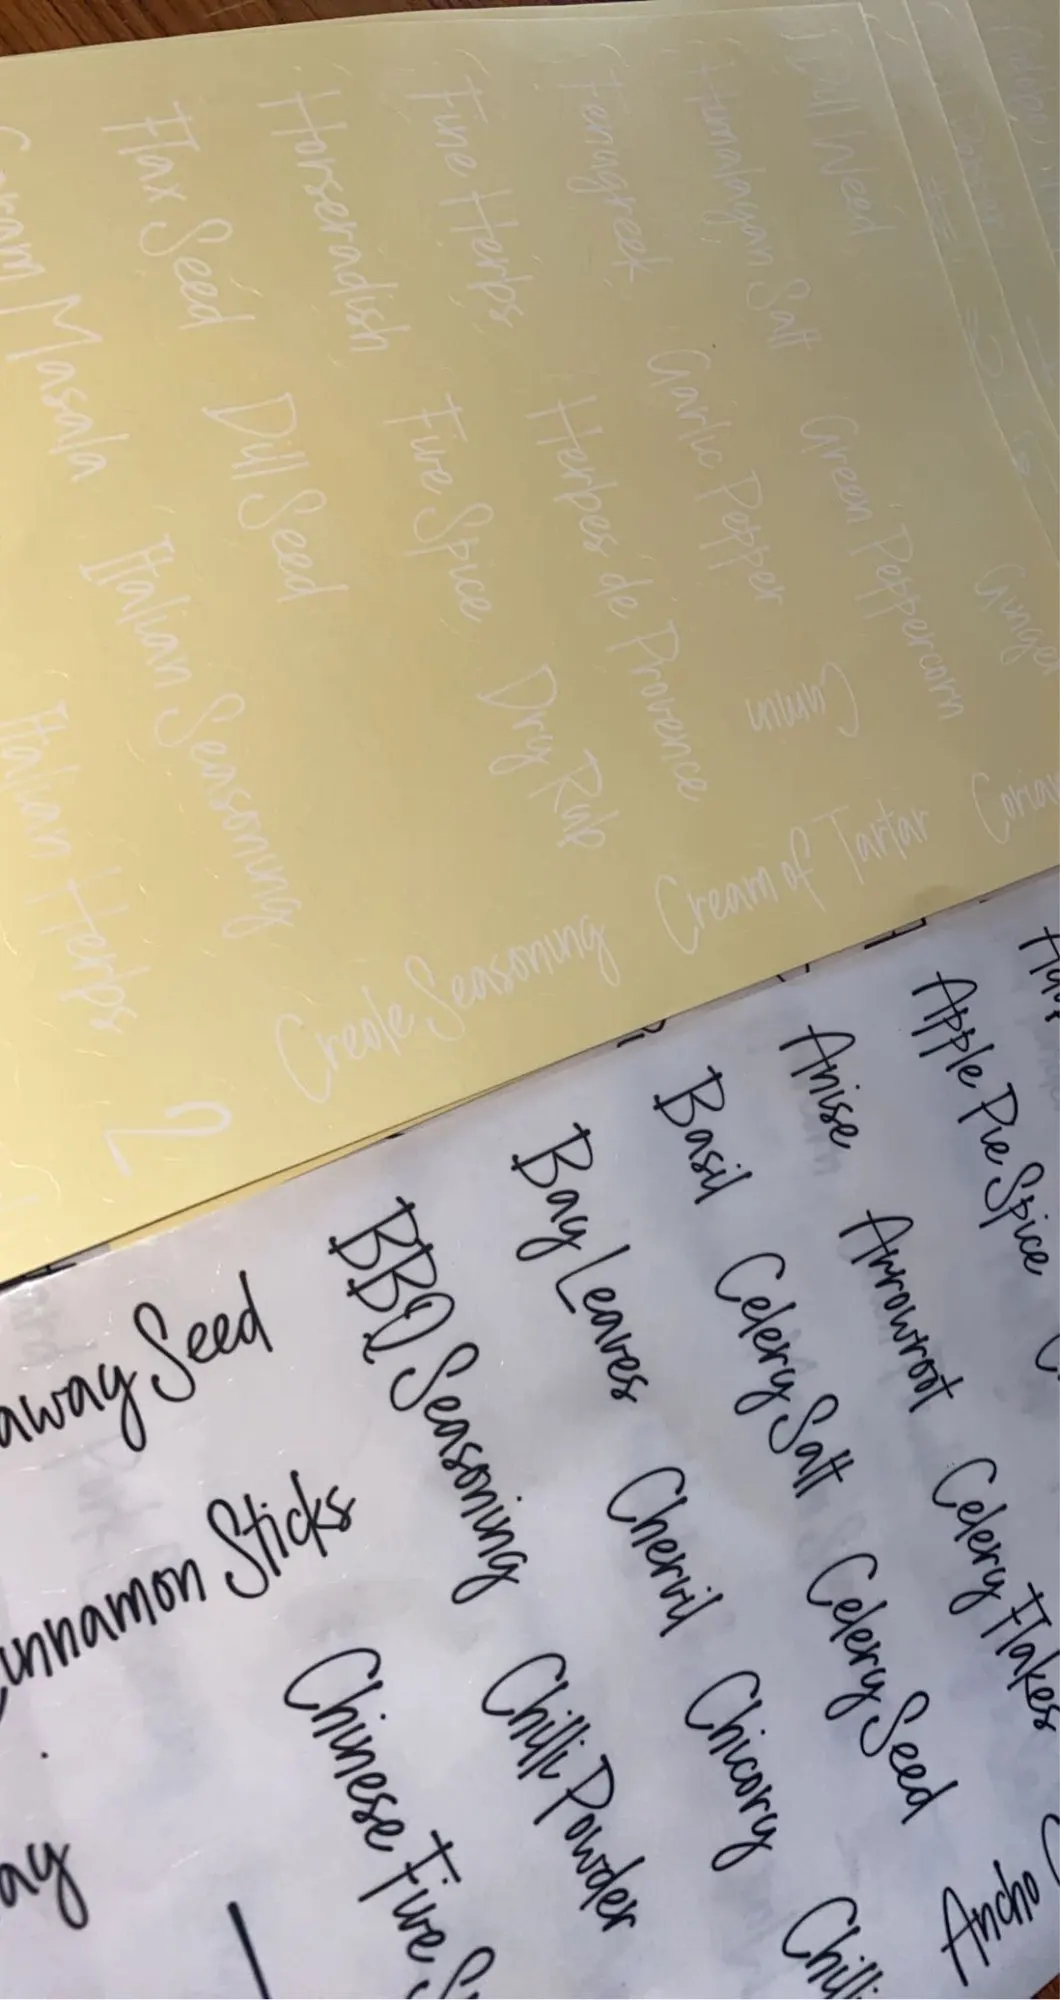 Dill Weed
Himalayan Salt
Fenugreek
Fine Herbs
Horseradish
Flax Seed
Masala
Green Peppercorn
Garlic Pepper
Herbes de Provence
Five Spice
Dill Seed
Italian Seasoning
Italian Herbs
Ginger
Cumin
Dry Rub
Cream of Tartar
Creole Seasoning
2
Apple Pie Spice
Anise
Basil
Bay Leaves
BBQ Seasoning
away Seed
Arrowroot
Celery Salt
Celery Flakes
Celery Seed
Chervil
Chicory
Chilli Powder
innamon Sticks
Chinese Five
Chilli
Ancho
ay
1